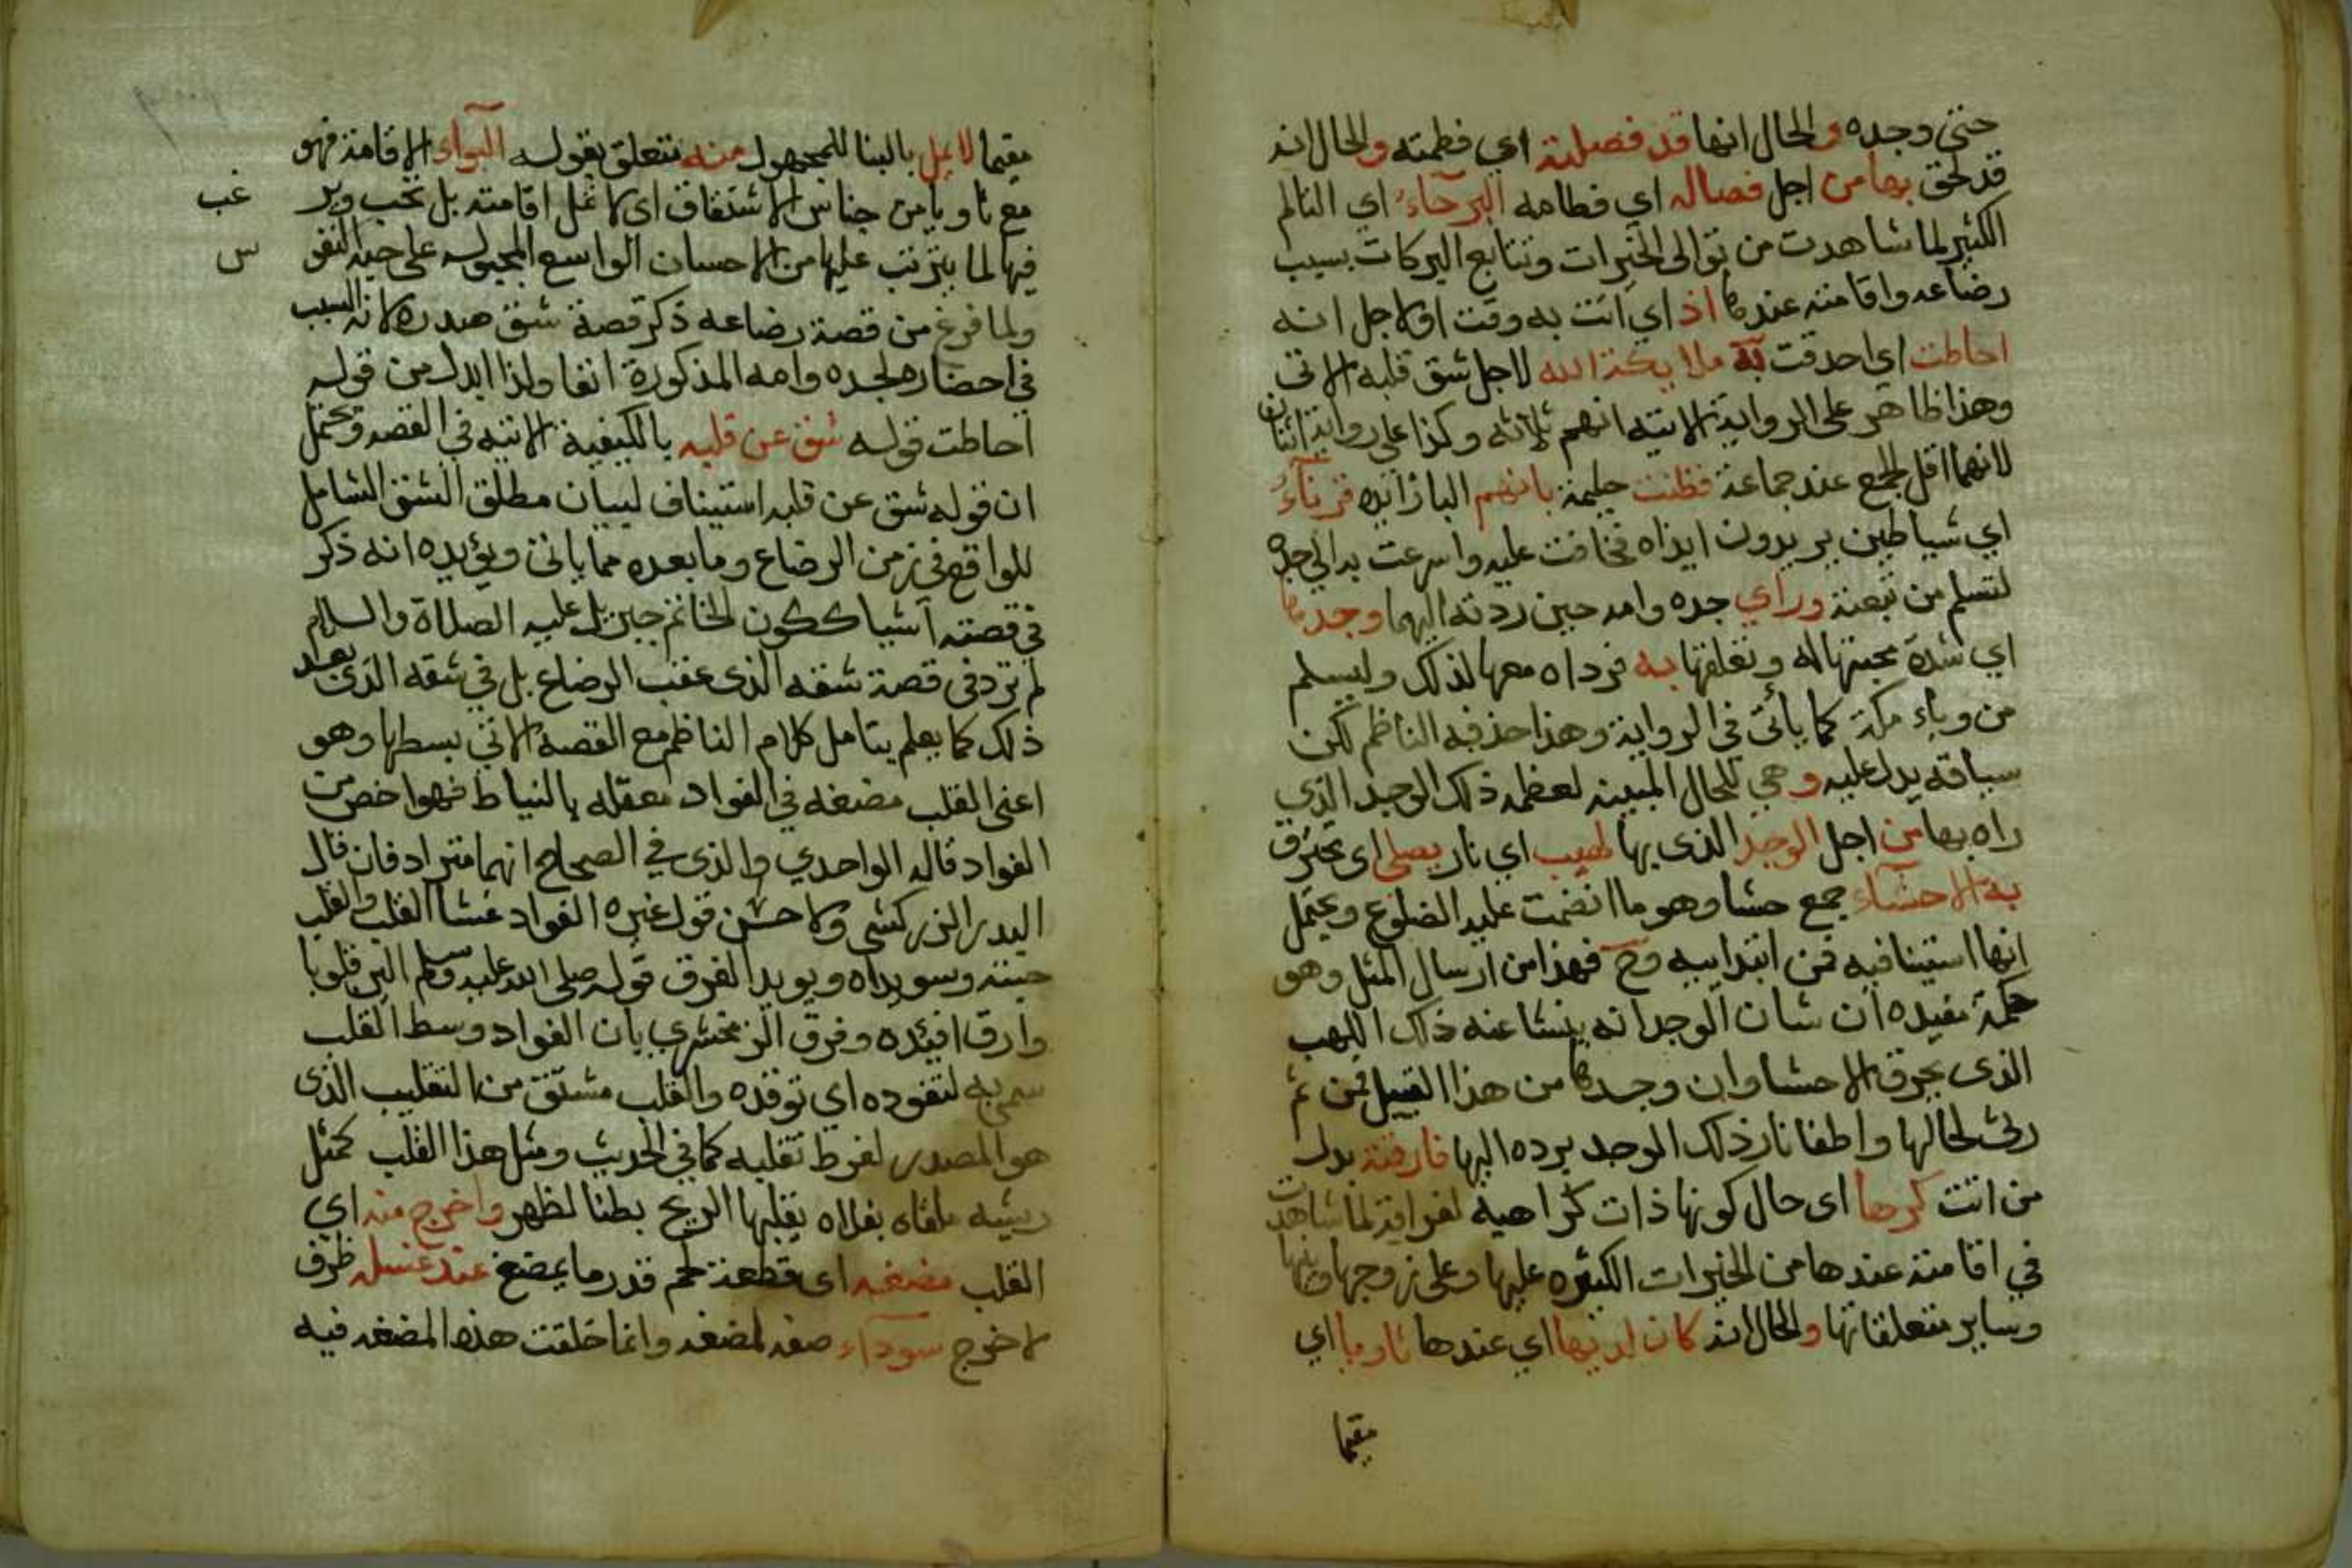 حتى وجده والحال انها قد فصلته اي فطمته والحال انه
قد لحق بها من اجل فصاله اي فطامه البرحاء اي التالم
الكثير لما شاهدت من توالى الخيرات وتتابع البركات بسبب
رضاعه واقامته عندها اذ اي اتت به وقت او لاجل انه
احاطت اي احدقت به ملايكة الله لاجل شق قلبه الاتى
وهذا ظاهر على الرواية الاتيه انهم ثلاثه وكذا على رواية اثنان
لانهما اقل الجمع عند جماعة فظنت حليمة بانهم الباء زائده قرناء
اي شياطين يريدون ايذاه فخافت عليه واسرعت به الي جده
لتسلم من تبعته وراي جده وامه حين ردته اليهما وجدها
اي شدة محبتها له وتعلقها به فرداه معها لذلك وليسلم
من وباء مكة كما يأتى فى الرواية وهذا حذفه الناظم لكن
سياقه يدل عليه وهي للحال المبينه لعظمه ذلك الوجد الذي
راه بها من اجل الوجد الذى بها لهيب اي نار يصلى اى تحترق
به الاحشاء جمع حشا وهو ما انضمت عليه الضلوع ويحتمل
انها استينافيه فمن ابتداييه وح فهذا من ارسال المثل وهو
حكمة مفيده ان شان الوجد انه ينشا عنه ذاك اللهب
الذى يحرق الاحشا وان وجدها من هذا القبيل فمن ثم
رثى لحالها واطفا نار ذلك الوجد برده اليها فارقته بدل
من اتت كرها اى حال كونها ذات كراهيه لفراقه لما شاهدت
في اقامته عندها من الخيرات الكثيره عليها وعلى زوجها وابنها
وساير متعلقاتها والحال انه كان لديها اي عندها ثاويا اي
مقيما
مقيما لا يمل بالبنا للمجهول منه متعلق بقوله الثواء الاقامة فهو
مع ثاويا من جناس الاشتقاق اى لا تمل اقامته بل تحب وير
غب
فيها لما يترتب عليها من الاحسان الواسع المجبول على حبه النفو
س
ولما فرغ من قصة رضاعه ذكر قصة شق صدره لانه السبب
في احضاره لجده وامه المذكورة انفا ولذا ابدل من قوله
احاطت قوله شق عن قلبه بالكيفية الاتيه في القصه ويحتمل
ان قوله شق عن قلبه استيناف لبيان مطلق الشق الشامل
للواقع في زمن الرضاع وما بعده مما ياتى ويؤيده انه ذكر
في قصته اشيا ككون الخاتم جبريل عليه الصلاة والسلام
لم ترد فى قصة شقه الذى عقب الرضاع بل في شقه الذى بعد
ذلك كما يعلم بتامل كلام الناظم مع القصه الاتى بسطها وهو
اعنى القلب مضغه في الفواد معقله بالنياط فهو اخص من
الفواد قاله الواحدي والذى في الصحاح انهما مترادفان قال
البدر الزركشى والاحسن قول غيره الفواد غشا القلب والقلب
حبته وسويداه ويويد الفرق قوله صلى الله عليه وسلم الين قلوبا
وارق افئده وفرق الزمخشري بان الفواد وسط القلب
سمى به لتفوده اي توقده والقلب مشتق من التقليب الذى
هو المصدر لفرط تقلبه كما في الحديث ومثل هذا القلب كمثل
ريشه ملقاه بفلاه يقلبها الريح بطنا لظهر واخرج منه اي
القلب مضغه اى قطعة لحم قدر ما يمضغ عند غسله ظرف
لاخرج سوداء صفه لمضغه وانما خلقت هذه المضغه فيه